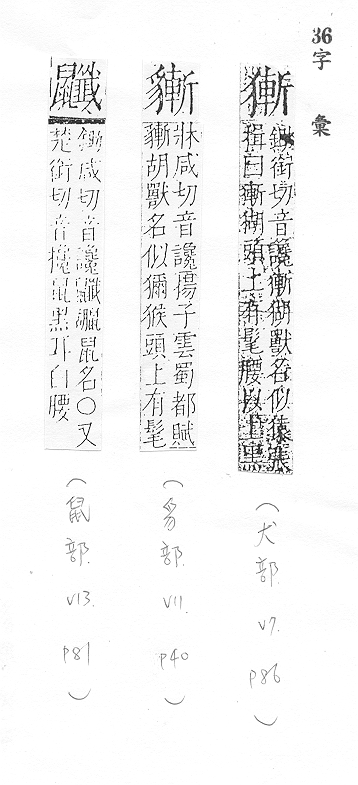 36字 彙
獑
鋤銜切音讒獑猢獸名似猿張
揖曰獑猢頭上有髦腰以上黑
(犬部 V7. P86)
牀咸切音讒揚子雲蜀都賦
胡獸名似獮猴頭上有髦
(豸部 V11. P40)
鋤咸切音讒鼠名〇又
初銜切音攙鼠黑耳白腰
(鼠部 V13. P81)